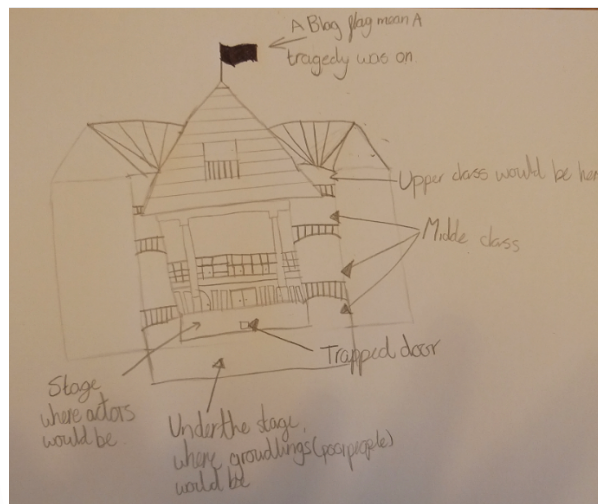 A Blag flag mean A
tragedy was on
Upper class would be her
Midde class
Trapped door
Stage
where actors
would be.
Under the stage,
where groudlings (poor people)
would be